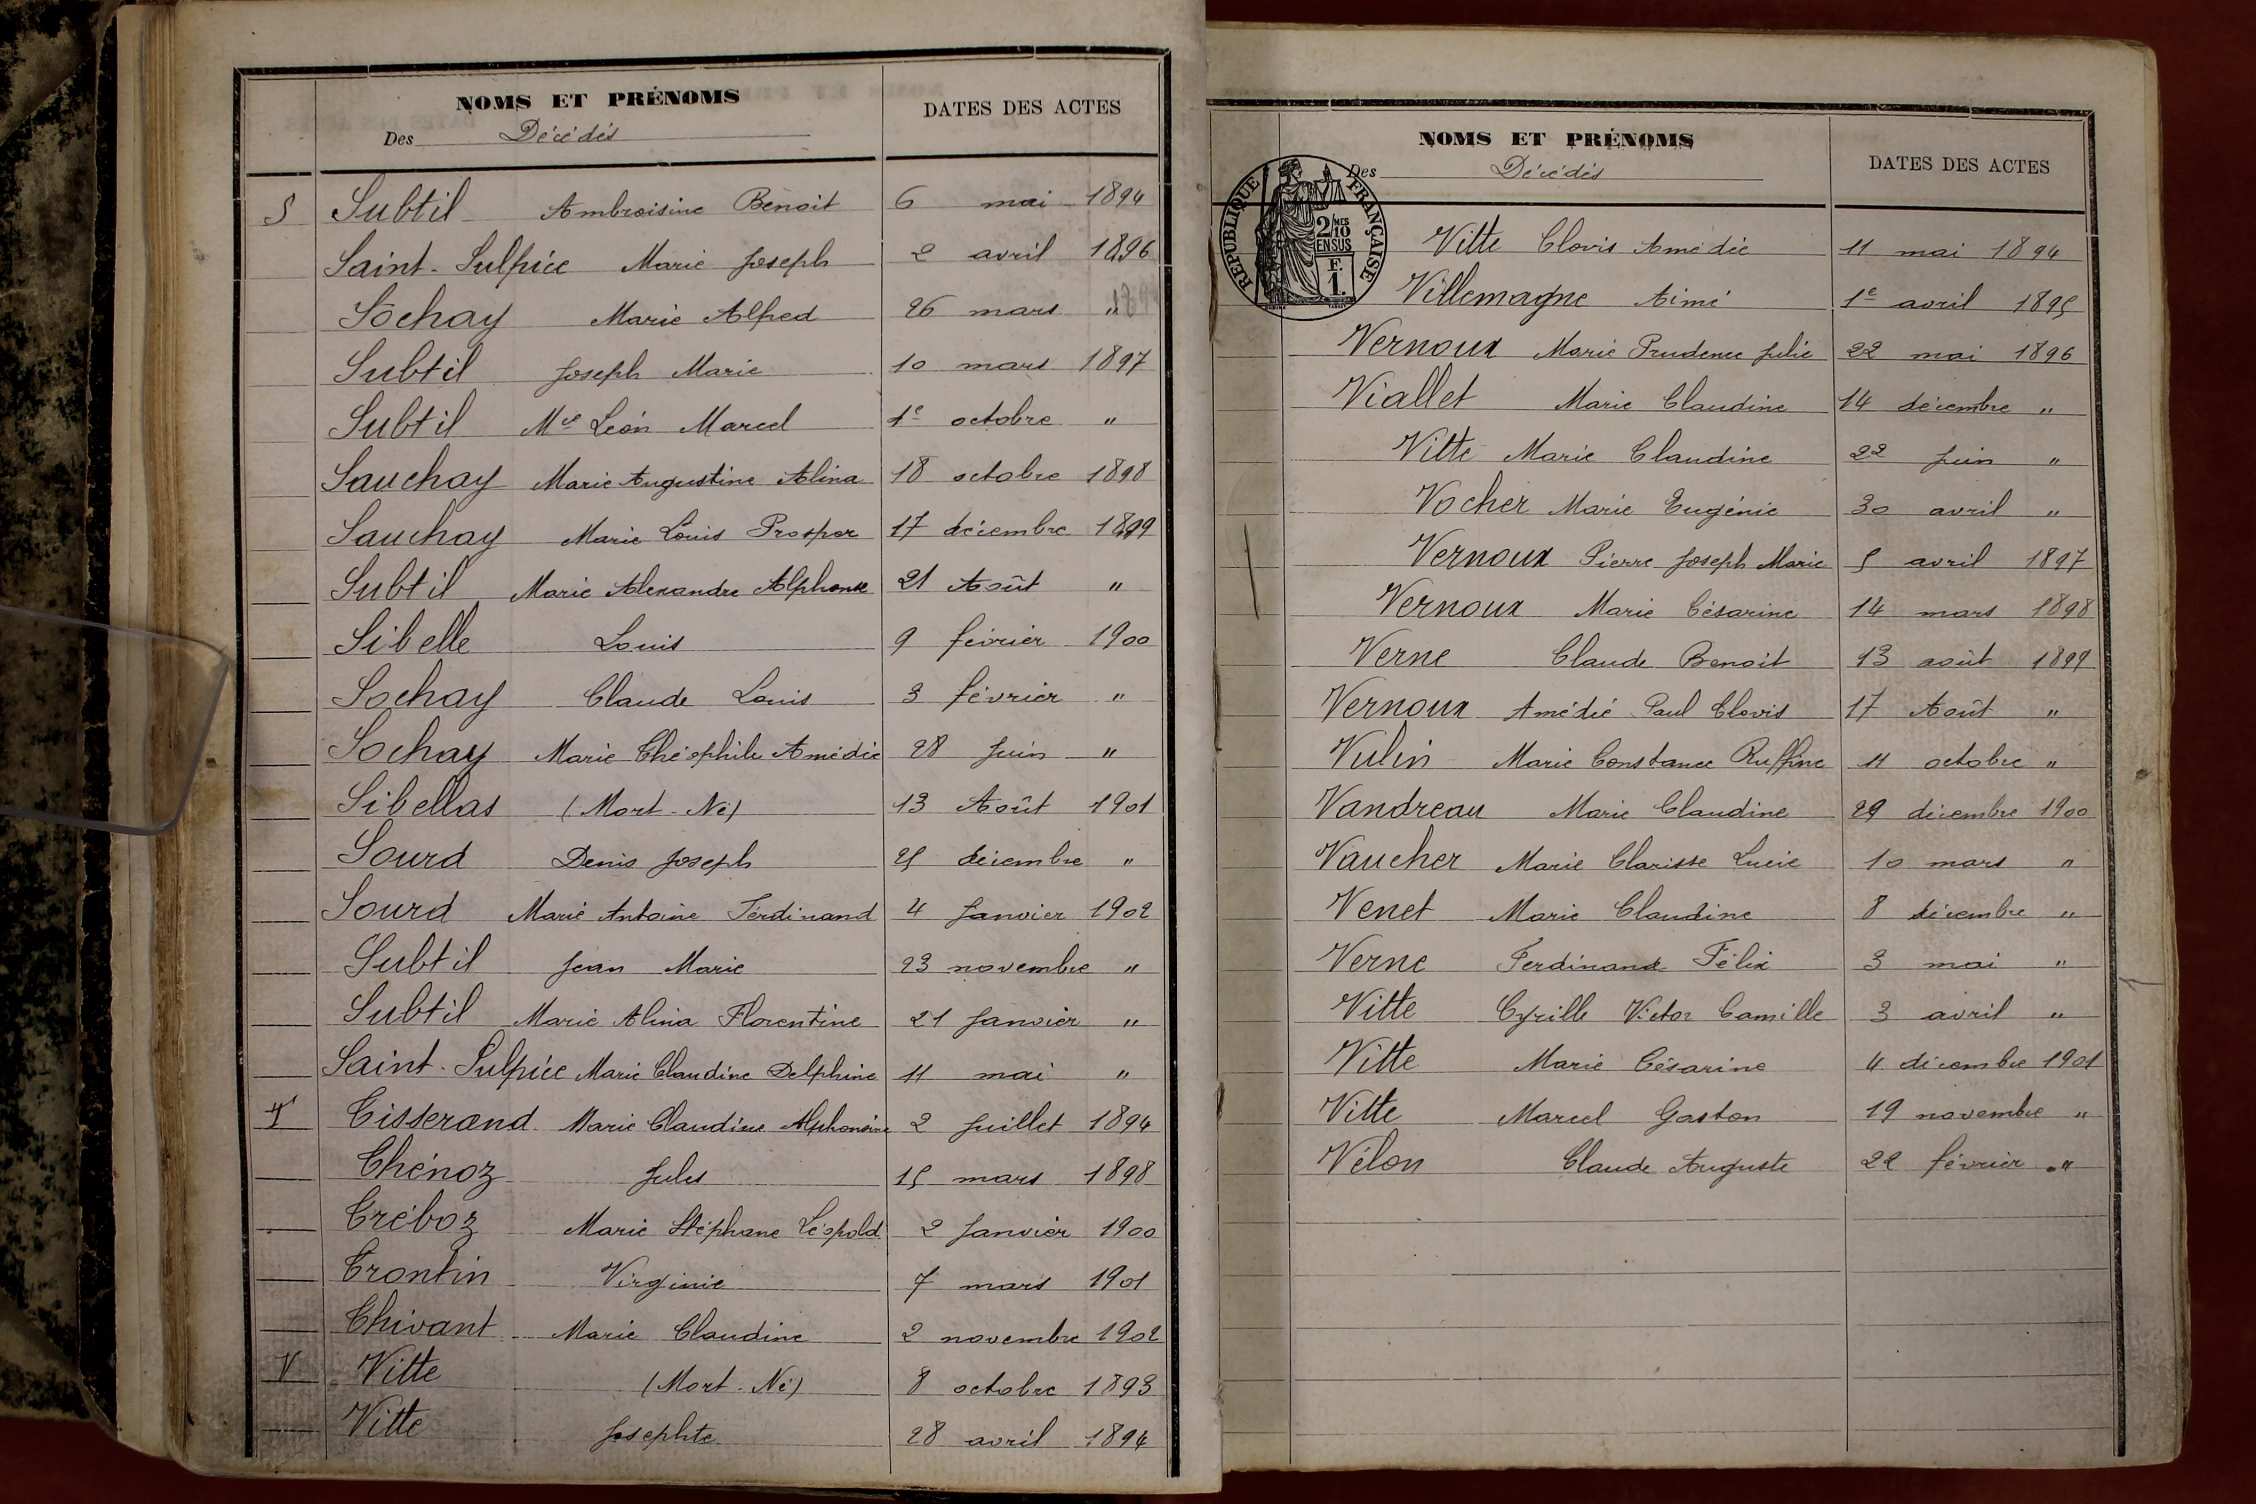 NOMS ET PRÉNOMS
Des Décédés
DATES DES ACTES
S Subtil Ambroisine Benoit 6 mai 1894
Saint-Sulpice Marie Joseph 2 avril 1896
Sochay Marie Alfred 26 mars "
Subtil Joseph Marie 10 mars 1897
Subtil Mie Léon Marcel 1e octobre "
Sauchay Marie Augustine Alina 18 octobre 1898
Sauchay Marie Louis Prosper 17 décembre 1899
Subtil Marie Alexandre Alphonse 21 Août "
Sibelle Louis 9 février 1900
Sochay Claude Louis 3 février "
Sochay Marie Théophile Amédie 28 Juin "
Sibellas (Mort-Né) 13 Août 1901
Sourd Denis Joseph 25 décembre "
Sourd Marie Antoine Ferdinand 4 Janvier 1902
Subtil Jean Marie 23 novembre "
Subtil Marie Alina Florentine 21 Janvier "
Saint-Sulpice Marie Claudine Delphine 11 mai "
T Tisserand Marie Claudine Alphonsine 2 Juillet 1894
Thénoz Jules 15 mars 1898
Tréboz Marie Stéphane Léopold 2 Janvier 1900
Trontin Virginie 7 mars 1901
Thivant Marie Claudine 2 novembre 1902
V Vitte (Mort-Né) 8 octobre 1893
Vitte Josephte 28 avril 1894
NOMS ET PRÉNOMS
Des Décédés
DATES DES ACTES
RÉPUBLIQUE FRANÇAISE
2/10 MES
EN SUS
F.
1.
Vitte Clovis Amédée 11 mai 1894
Villemagne Aimé 1e avril 1895
Vernoux Marie Prudence Julie 22 mai 1896
Viallet Marie Claudine 14 décembre "
Vitte Marie Claudine 22 Juin "
Vocher Marie Eugénie 30 avril "
Vernoux Pierre Joseph Marie 5 avril 1897
Vernoux Marie Césarine 14 mars 1898
Verne Claude Benoit 13 août 1899
Vernoux Amédié Paul Clovis 17 Août "
Vulin Marie Constance Ruffine 11 octobre "
Vandreau Marie Claudine 29 décembre 1900
Vaucher Marie Clarisse Lucie 10 mars "
Venet Marie Claudine 8 décembre "
Verne Ferdinand Félix 3 mai "
Vitte Cyrille Victor Camille 3 avril "
Vitte Marie Césarine 4 décembre 1901
Vitte Marcel Gaston 19 novembre "
Vélon Claude Auguste 22 février "